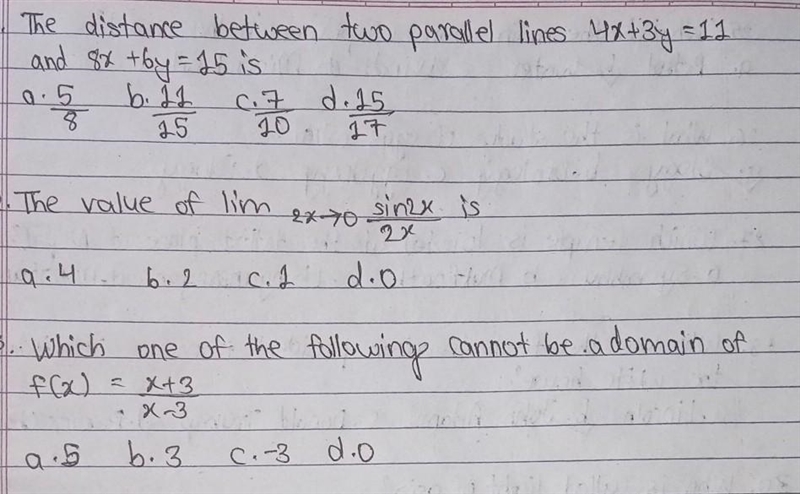 . The distance between two parallel lines 4x+3y=11
and 8x +6y=15 is
a. 5/8 b. 11/15 c. 7/10 d. 15/17
. The value of lim 2x→0 sin2x/2x is
a. 4 b. 2 c. 1 d. 0
3. Which one of the following cannot be a domain of
f(x) = x+3/x-3
a. 5 b. 3 c. -3 d. 0